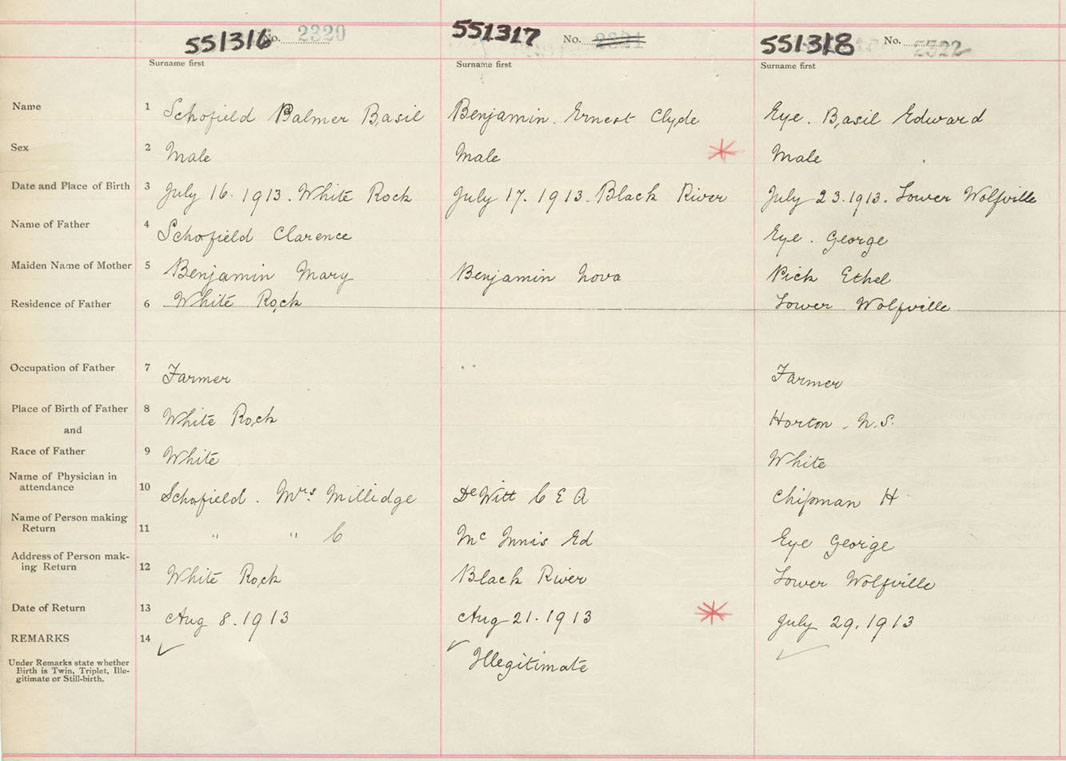 551316 No. 2320 551317 No. 2321 551318 No. 2322
Surname first Surname first Surname first
Name 1 Schofield Balmer Basil Benjamin. Ernest Clyde Eye. Basil Edward
Sex 2 Male Male Male
Date and Place of Birth 3 July 16. 1913. White Rock July 17. 1913. Black River July 23. 1913. Lower Wolfville
Name of Father 4 Schofield Clarence Eye. George
Maiden Name of Mother 5 Benjamin Mary Benjamin Nova Pick Ethel
Residence of Father 6 White Rock Lower Wolfville
Occupation of Father 7 Farmer Farmer
Place of Birth of Father 8 White Rock Horton. N.S.
and
Race of Father 9 White White
Name of Physician in
attendance 10 Schofield. Mrs Millidge DeWitt C E A Chipman H
Name of Person making
Return 11 " " C Mc Innis Ed Eye George
Address of Person mak-
ing Return 12 White Rock Black River Lower Wolfville
Date of Return 13 Aug 8. 1913 Aug 21. 1913 July 29. 1913
REMARKS 14
Under Remarks state whether
Birth is Twin, Triplet, Ille-
gitimate or Still-birth.
Illegitimate